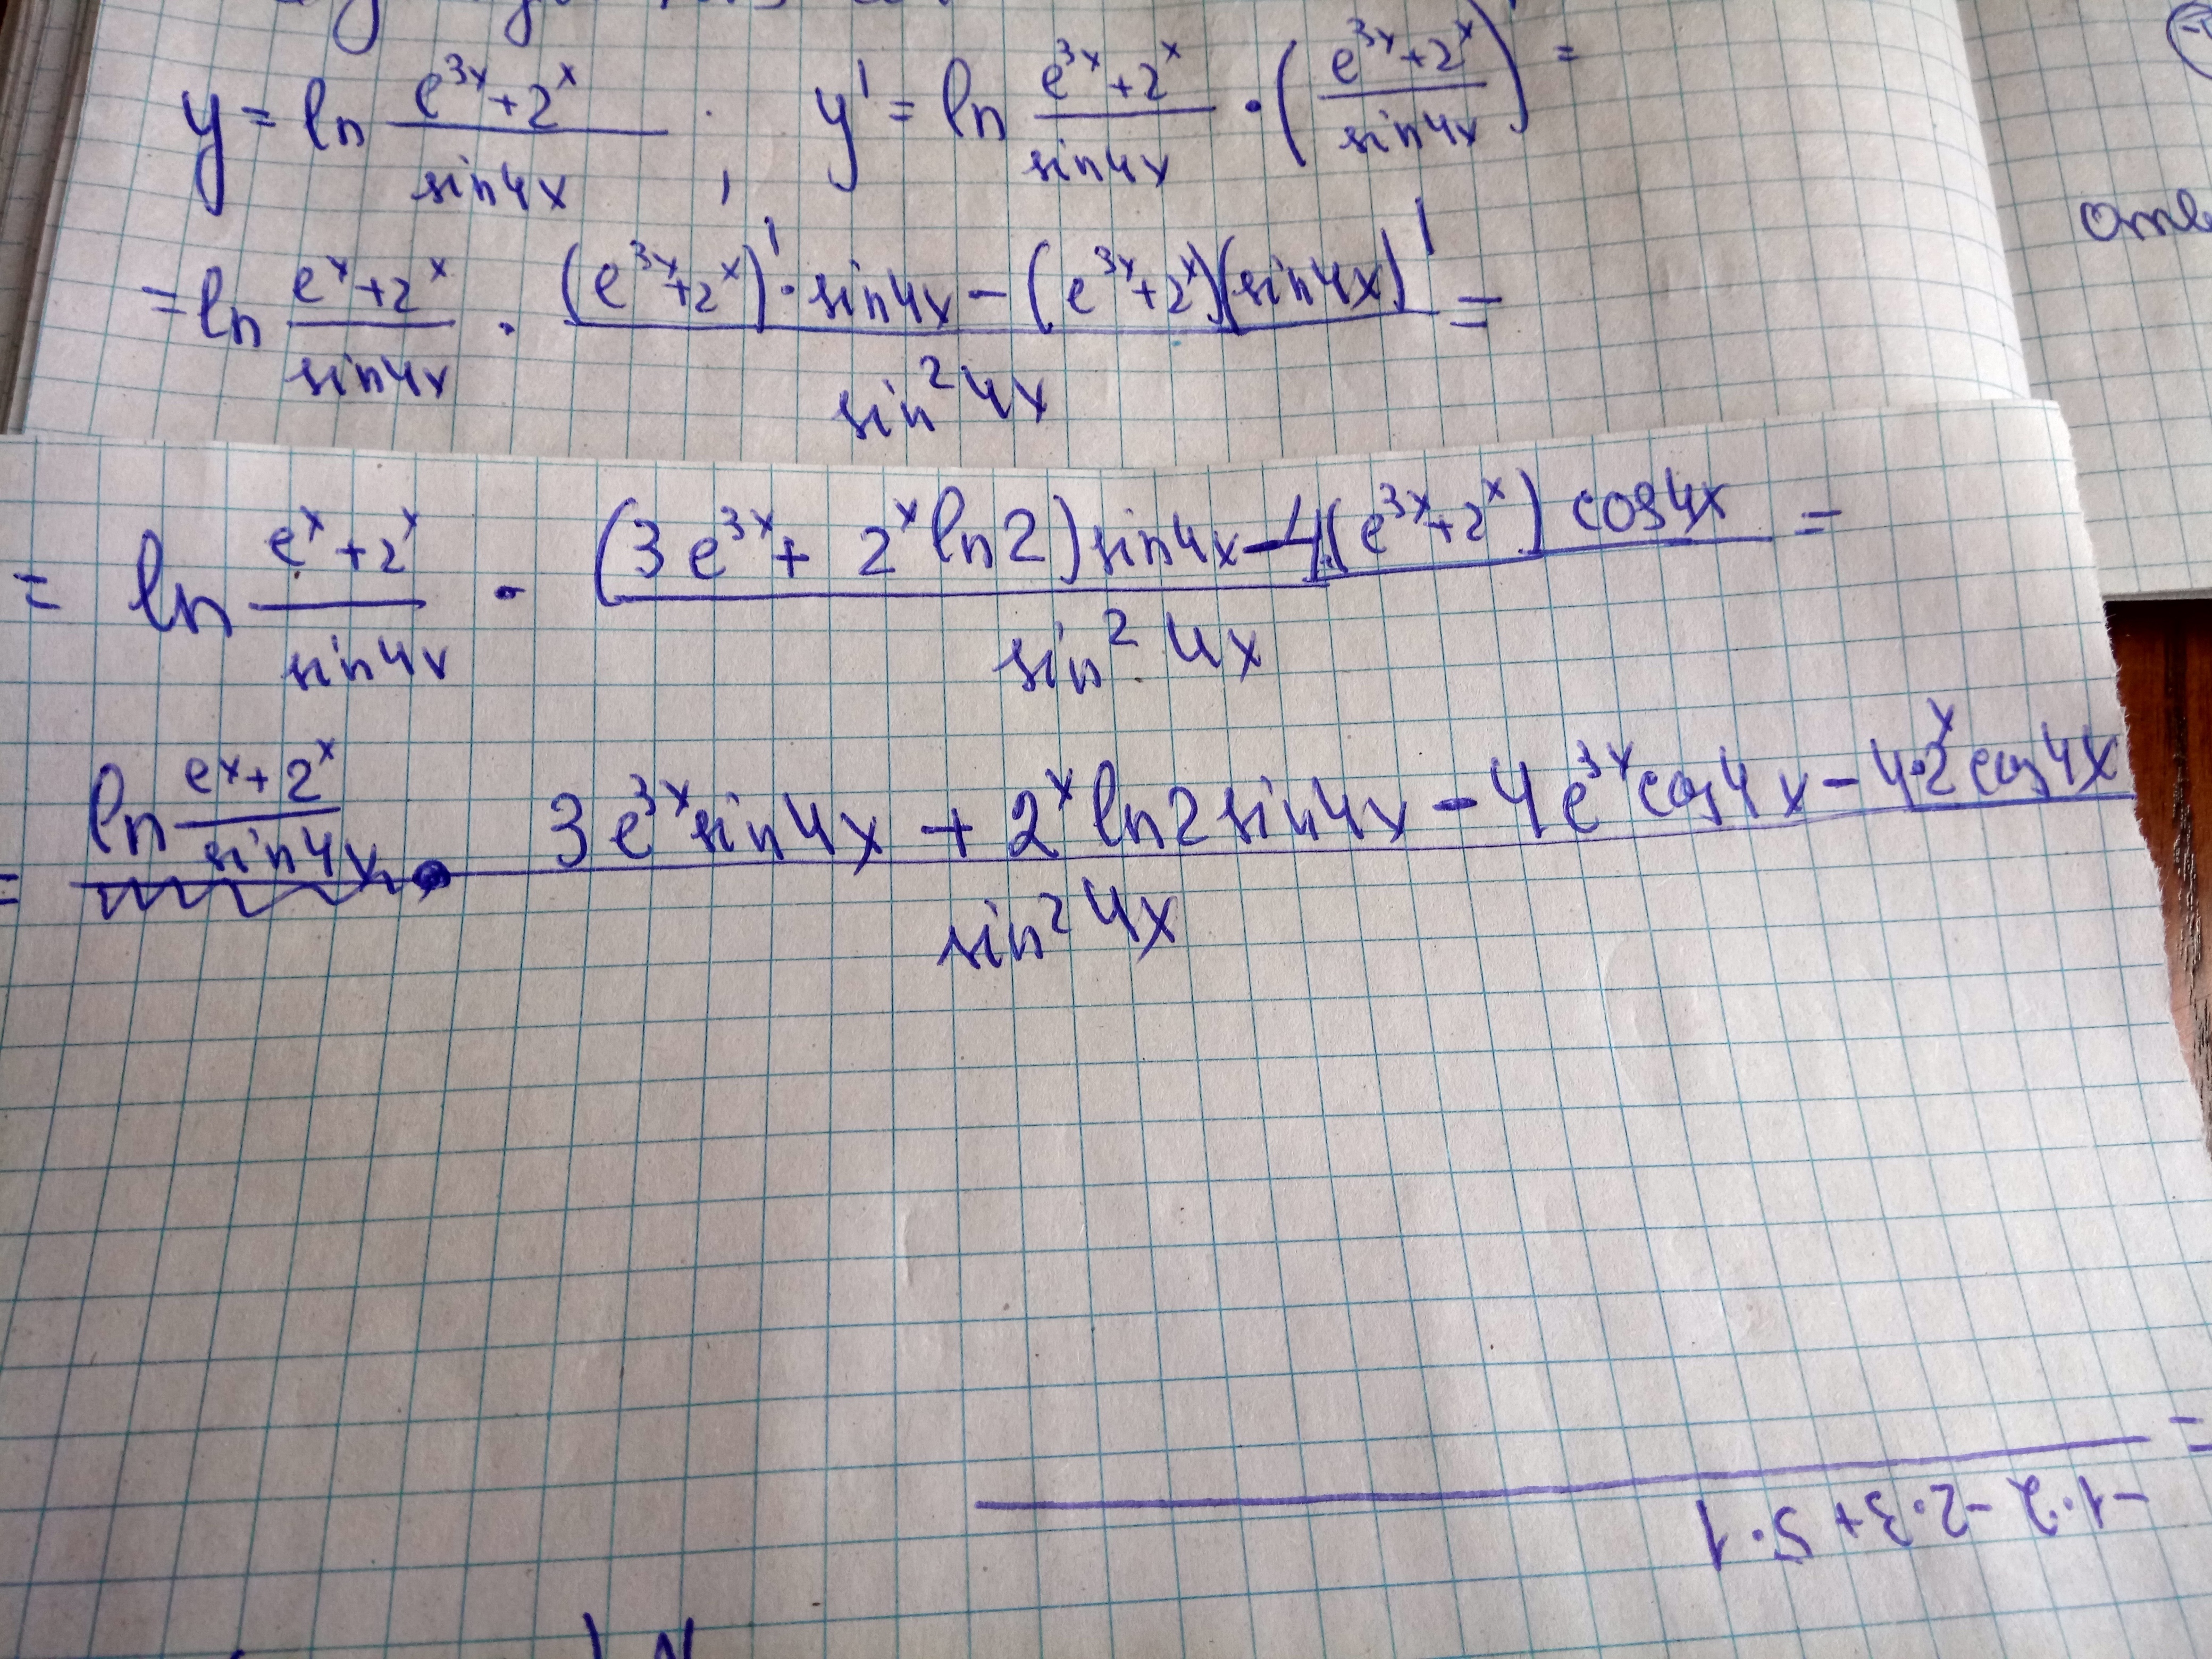 y = ln (e^{3x}+2^x)/(sin4x) ; y' = ln (e^{3x}+2^x)/(sin4x) · ((e^{3x}+2^x)/(sin4x))' =
= ln (e^x+2^x)/(sin4x) · ((e^{3x}+2^x)' · sin4x - (e^{3x}+2^x)(sin4x)')/(sin^2 4x) =
= ln (e^x+2^x)/(sin4x) · ((3e^{3x} + 2^x ln2) sin4x - 4·(e^{3x}+2^x) cos4x)/(sin^2 4x) =
= ln (e^x+2^x)/(sin4x) · (3e^{3x} sin4x + 2^x ln2 sin4x - 4e^{3x} cos4x - 4·2^x cos4x)/(sin^2 4x)
-1·2 -2·3 + 5·1
=